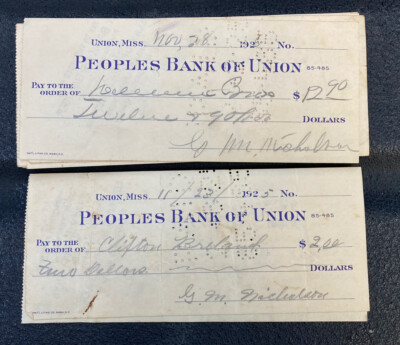 UNION, MISS. Nov, 28 192 No.
PEOPLES BANK OF UNION 85-485
PAY TO THE
ORDER OF Bros $ 12 90
Twelve & 90/100 DOLLARS
G M Nicholson
UNION, MISS. 11/23/ 1925 No.
PEOPLES BANK OF UNION 85-485
PAY TO THE
ORDER OF Clifton Breland $ 2,00
Two Dollars DOLLARS
G. M. Nicholson